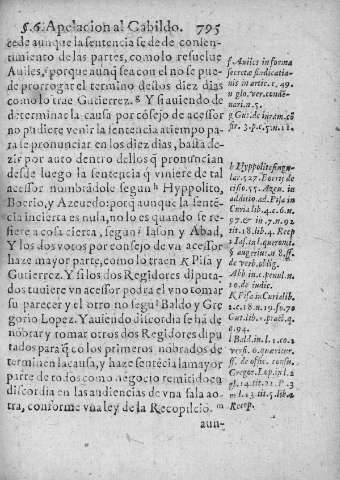 §.6. Apelacion al Cabildo. 795
cede aunque la sentencia se dè de consen-
timiento de las partes, como lo resuelue
Auiles,ᶠ porque aunq̃ sea con el no se pue-
de prorrogar el termino dellos diez dias
como lo trae Gutierrez.ᵍ Y si auiendo de
determinar la causa por cõsejo de acessor
no pudiere venir la sentencia a tiempo pa-
ra se pronunciar en los diez dias, basta de-
zir por auto dentro dellos q̃ pronuncian
desde luego la sentencia q̃ viniere de tal
acessor nombrãdole segunʰ Hyppolito,
Boerio, y Azeuedo: porq̃ aunque la sentẽ-
cia incierta es nula, no lo es quando se re-
fiere a cosa cierta, segunⁱ Iason y Abad,
Y los dos votos por consejo de vn acessor
haze mayor parte, como lo traen K Pisa y
Gutierrez. Y si los dos Regidores diputa-
dos tuuierẽ vn acessor podra el vno tomar
su parecer y el otro no segũˡ Baldo y Gre
gorio Lopez. Y auiendo discordia se hã de
nõbrar y tomar otros dos Regidores dipu
tados para q̃ co los primeros nõbrados de
terminen la causa, y haze sentẽcia la mayor
parte de todos como negocio remitido en
discordia en las audiencias de vna sala a o-
tra, conforme vna ley de la Recopilciõ. ᵐ
aun-
f. Auiles in forma
secretæ sindicatio-
nis in artic. 1. 49.
n glo. ver. conde-
nari. n. 5.
g Gut. de iuram. cõ
fir. 3. p. c. 5. n. 11.
h Hyppolite singu-
lar. 527. Boeric. de
cisio. 55. Azeu. in
additio. ad. Pisa in
Curia lib. 4. c. 6. n.
97. & in .7. n. 92
tit. 18. lib. 4. Recop
i Ias. in l. quæromit.
§ augerius: n 8. ff.
de verb. oblig.
Abb in c. penul. n.
10. de iudic.
K Pisa in Curia lib.
1. c. 18. n. 19. fo. 70
Gut. lib. 1. pract. q.
q. 94.
l Bald. in. l. 1. co. 2
versi. 6. quæritur.
ff. de offic. consu.
Gregor. Lop. in l. 2
gl. 14. tit. 21. P. 3
m l. 13. tit. 5. lib. 2
Recop.